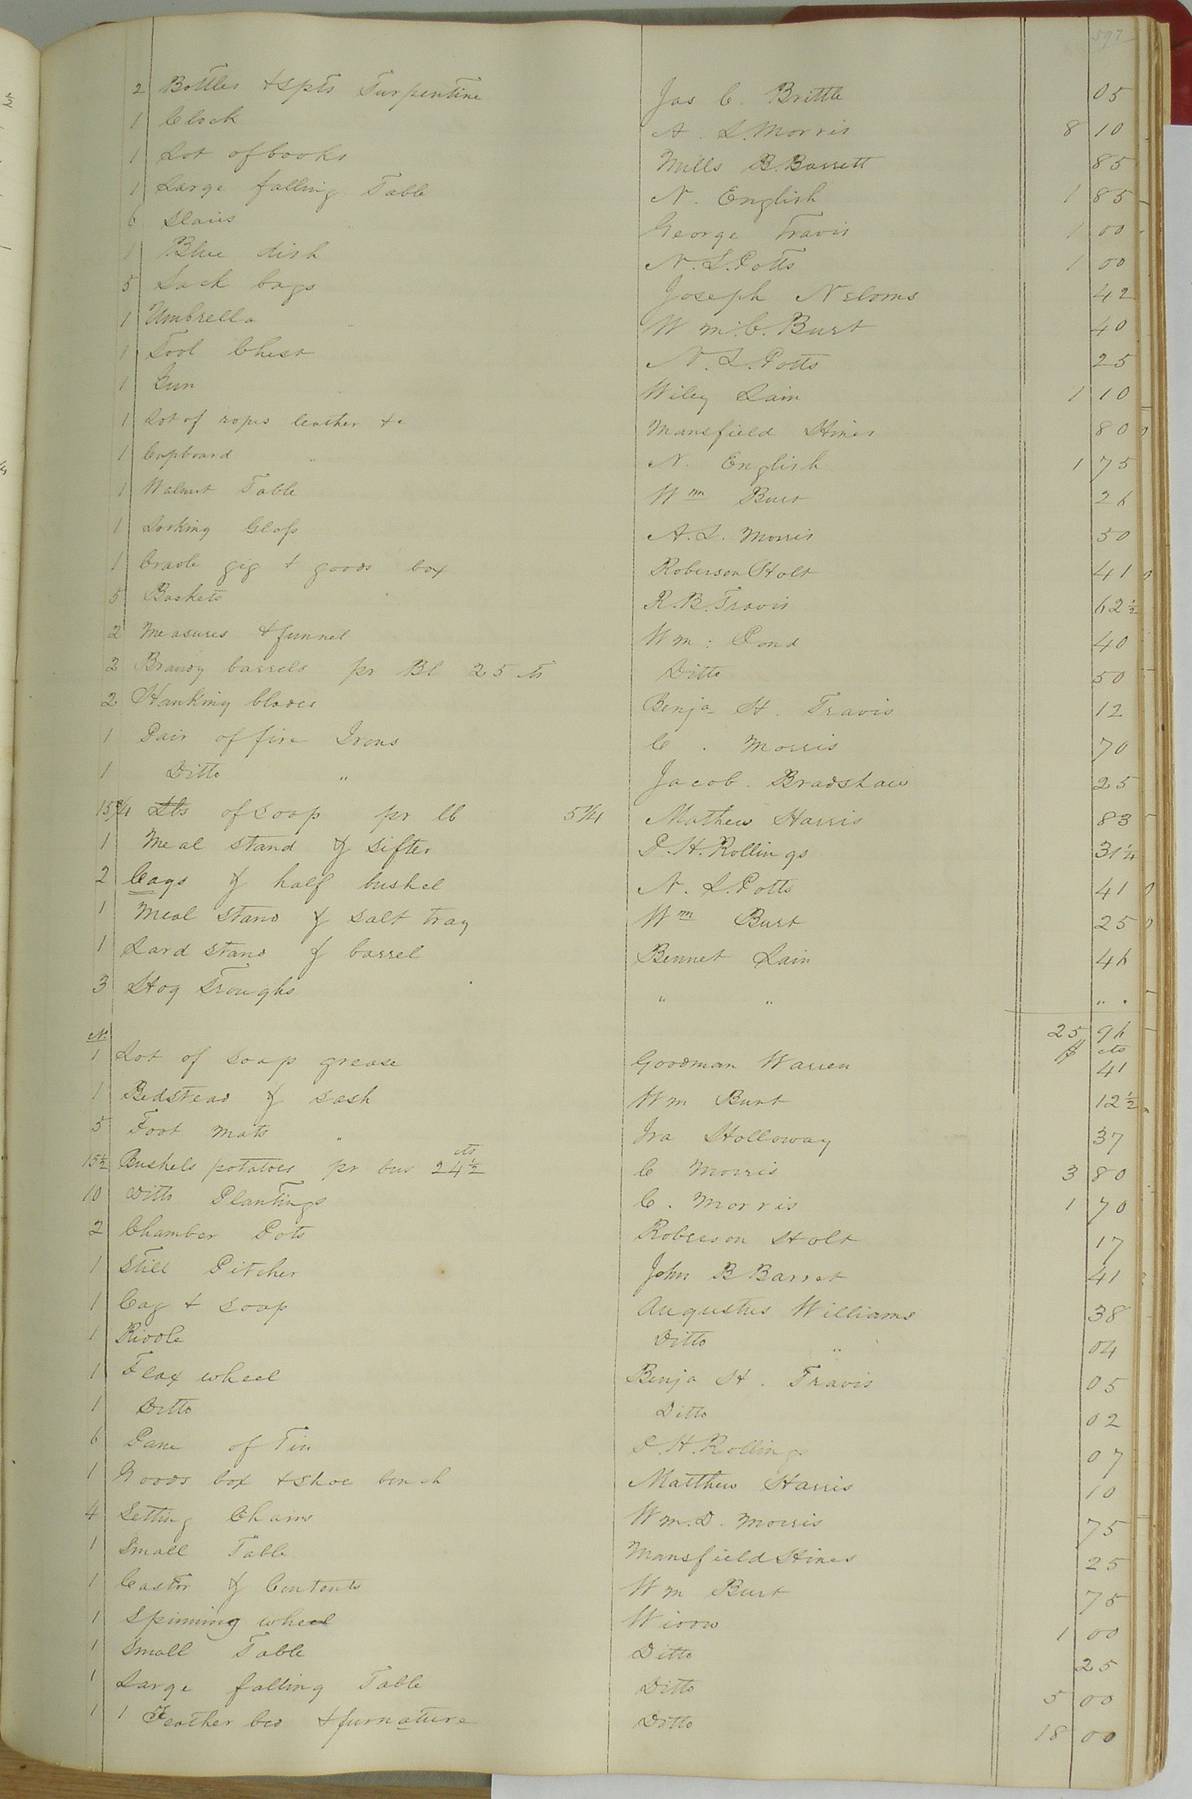 597
2 Bottles & Spts Turpentine Jas C. Brittle 05
1 Clock A. L. Morris 8 10
1 Lot of books Mills B. Barrett 85
1 Large falling Table N. English 1 85
6 Slaies George Travis 1 00
1 Blue dish N. L. Potts 1 00
5 Sack bags Joseph Neloms 42
1 Umbrella Wm. C. Burt 40
1 Tool Chest N. L. Potts 25
1 Gun Wiley Lain 1 10
1 Lot of ropes leather &c Mansfield Hines 80
1 Cupboard N. English 1 75
1 Walnut Table Wm Burt 26
1 Looking Glass A. L. Morris 50
1 Cradle gig & goods box Roberson Holt 41
5 Baskets R. B. Travis 62½
2 Measures & funnel Wm: Pond 40
2 Brandy barrels pr Bl 25 cts Ditto 50
2 Hanking blades Benja H. Travis 12
1 Pair of fire Irons C. Morris 70
1 Ditto " Jacob Bradshaw 25
15¾ Lbs of Soap pr lb 5¼ Mathew Harris 83
1 Meal stand & sifter D. H. Rollings 31¼
2 Cags & half bushel N. L. Potts 41
1 Meal stand & salt tray Wm Burt 25
1 Lard stand & barrel Bennet Lain 46
3 Hog Troughs " " " "
25 96
N. $ cts
1 Lot of Soap grease Goodman Warren 41
1 Bedstead & sash Wm Burt 12½
5 Foot mats Ira Holloway 37
15½ Bushels potatoes pr bus 24½ cts C Morris 3 80
10 Ditto Plantings C. Morris 1 70
2 Chamber Pots Roberson Holt 17
1 Still Pitcher John B Barret 41
1 Cag & Soap Augustus Williams 38
1 Riddle Ditto " 04
1 Flax wheel Benja H. Travis 05
1 Ditto Ditto 02
6 Pane of Tin D. H. Rollings 07
1 Goods box & shoe bench Matthew Harris 10
4 Setting Chairs Wm. D. Morris 75
1 Small Table Mansfield Hines 25
1 Castor & Contents Wm Burt 75
1 Spinning wheel Widow 1 00
1 Small Table Ditto 25
1 Large falling Table Ditto 5 00
1 1 Feather bed & furnature Ditto 18 00